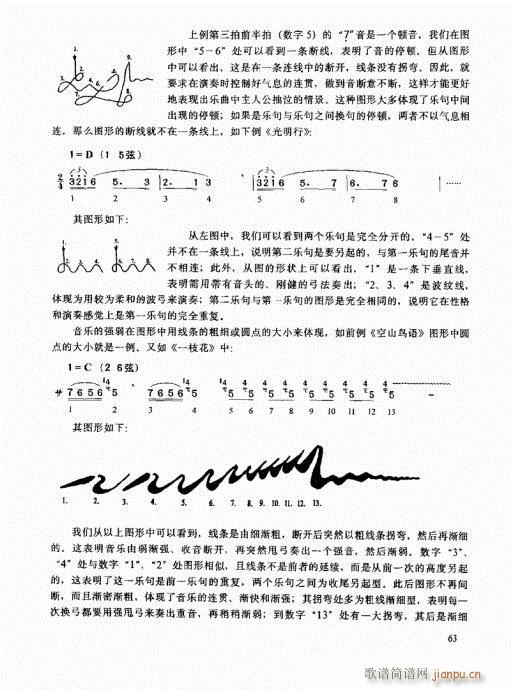 上例第三拍前半拍（数字5）的“7”音是一个顿音，我们在图
形中“5-6”处可以看到一条断线，表明了音的停顿。但从图形
中可以看出，这是在一条连线中的断开，线条没有拐弯。因此，就
要求在演奏时控制好气息的连贯，做到音断意不断，这样才能更好
地表现出乐曲中主人公抽泣的情景。这种图形大多体现了乐句中间
出现的停顿；如果是乐句与乐句之间换句的停顿，两者不以气息相
连。那么图形的断线就不在一条线上，如下例《光明行》：
1=D（1 5弦）
2/4 3216 5. 3 2. 1 3 3216 5. 7 6. 7 6 ……
1 2 3 4 5 6 7 8
其图形如下：
从左图中，我们可以看到两个乐句是完全分开的，“4-5”处
并不在一条线上，说明第二乐句是要另起的，与第一乐句的尾音并
不相连；此外，从图的形状上可以看出，“1”是一条下垂直线，
表明需用带有音头的、刚健的弓法奏出；“2、3、4”是波纹线，
体现为用较为柔和的波弓来演奏；第二乐句与第一乐句的图形是完全相同的，说明它在性格
和演奏感觉上是第一乐句的完全重复。
音乐的强弱在图形中用线条的粗细或圆点的大小来体现，如前例《空山鸟语》图形中圆
点的大小就是一例。又如《一枝花》中：
1=C（2 6弦）
7656 5 7656 5 5 5 5 5 5 5 5 5 5
1 2 3 4 5 6 7 8 9 10 11 12 13
其图形如下：
1. 2. 3. 4. 5. 6. 7. 8. 9. 10. 11. 12. 13.
我们从以上图形中可以看到，线条是由细渐粗，断开后突然以粗线条拐弯，然后再渐细
的。这表明音乐由弱渐强、收音断开，再突然甩弓奏出一个强音，然后渐弱。数字“3”、
“4”处与数字“1”、“2”处图形相似，且线条不是前者的延续，而是从前一次的高度另起
的，这表明了这一乐句是前一乐句的重复，两个乐句之间为收尾另起型。此后图形不再间
断，而且渐密渐粗，体现了音乐的连贯、渐快和渐强；其拐弯处多为粗线渐细型，表明每一
次换弓都要用强甩弓来奏出重音，再稍稍渐弱；到数字“13”处有一大拐弯，其后是渐细
63
歌谱简谱网
jianpu.cn